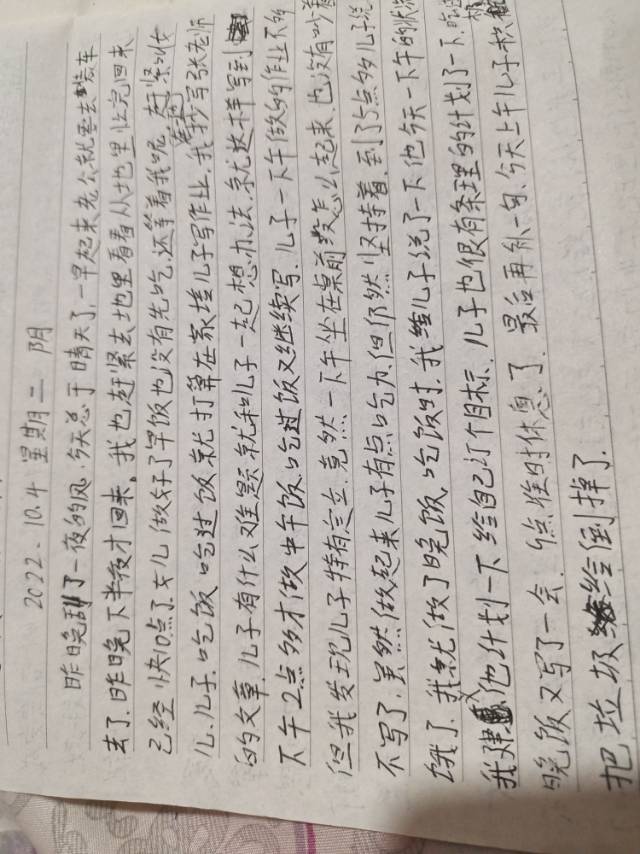 2022.10.4 星期二 阴
昨晚刮了一夜的风,今天总于晴天了,一早起来老公就要去装车
去了.昨晚下半夜才回来。我也赶紧去地里看看从地里忙完回来
已经快10点了.女儿做好了早饭也没有先吃,还等着我呢,赶紧叫女
儿.儿子.吃饭.吃过饭就打算在家陪儿子写作业,我抄写张老师
的文章,儿子有什么难题就和儿子一起想办法,就这样写到
下午2点多才做中午饭,吃过饭又继续写.儿子一下午做的作业不多
但我发现儿子特有定立.竟然一下午坐在桌前没怎么起来,也没有吵着
不写了,虽然做起来儿子有点吃力,但仍然坚持着,到了5点多儿子说
饿了.我就做了晚饭,吃饭时.我给儿子说了一下他今天一下午的状
我建他计划一下给自己订个目标.儿子也很有条理的计划了一下.吃
晚饭又写了一会.9点准时休息了.最后再称一句.今天上午儿子积极
把垃圾给倒掉了.